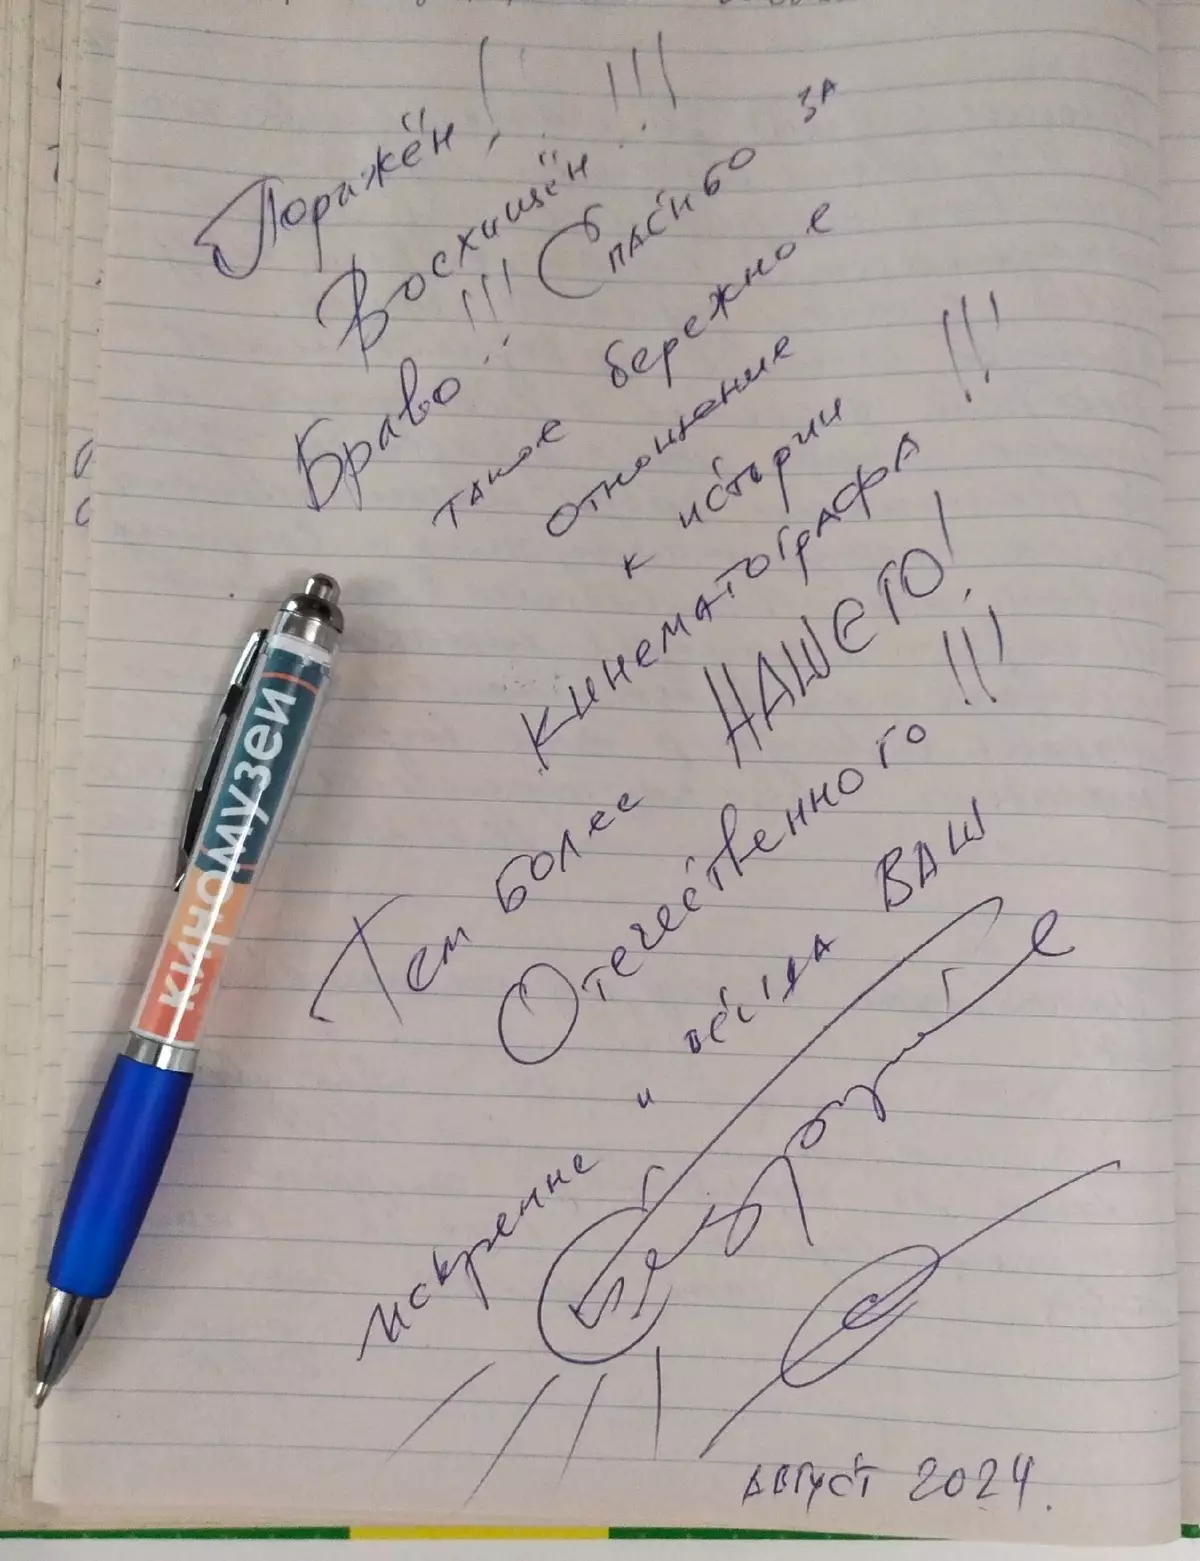 Поражён!
Восхищён!!!
Браво!!! Спасибо за
такое бережное
отношение
к истории
кинематографа!!!
Тем более НАШЕГО!
Отечественного!!!
искренне и всегда ВАШ
Август 2024.
КИНОМУЗЕЙ